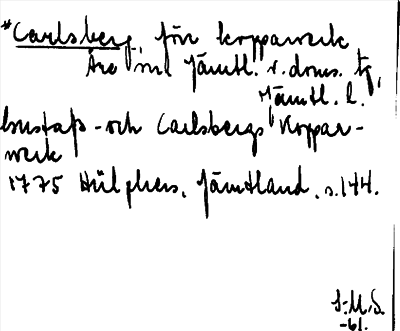 *Carlsberg, förr kopparverk
Åre sn Jämtl. v. doms. tg,
Jämtl. l.
Gustafs- och Carlsbergs Koppar-
werk
1775 Hülphers, Jämtland, s. 144.
S:M.S.
-61.